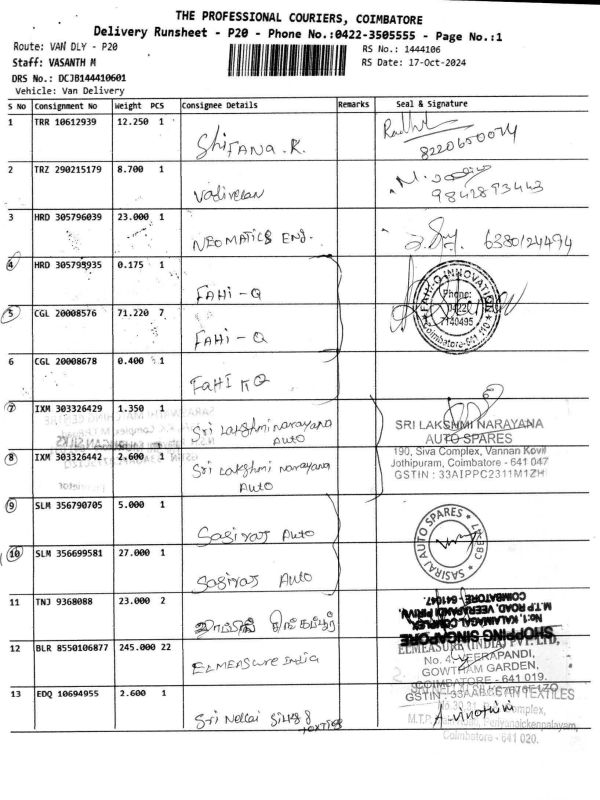 THE PROFESSIONAL COURIERS, COIMBATORE
Delivery Runsheet - P20 - Phone No.:0422-3505555 - Page No.:1
Route: VAN DLY - P20
RS No.: 1444106
Staff: VASANTH M
RS Date: 17-Oct-2024
DRS No.: DCJB144410601
Vehicle: Van Delivery
S No Consignment No Weight PCS Consignee Details Remarks Seal & Signature
1 TRR 10612939 12.250 1
ShiFANA.R.
8220650074
2 TRZ 290215179 8.700 1
Vadivelan
9842893443
3 HRD 305796039 23.000 1
NEOMATICS Eng.
6380124494
4 HRD 305795935 0.175 1
FAHI-Q
FAHI-Q INNOVATION
Phone:
0422
7140495
Coimbatore-641 110
5 CGL 20008576 71.220 7
FAHI-Q
6 CGL 20008678 0.400 1
FAHI Q
7 IXM 303326429 1.350 1
Sri Lakshmi narayana
Auto
SRI LAKSHMI NARAYANA
AUTO SPARES
190, Siva Complex, Vannan Kovil
Jothipuram, Coimbatore - 641 047
GSTIN : 33AIPPC2311M1ZH
8 IXM 303326442 2.600 1
Sri Lakshmi narayana
Auto
9 SLM 356790705 5.000 1
Sasiraj Auto
SASIRAJ AUTO SPARES
10 SLM 356699581 27.000 1
Sasiraj Auto
11 TNJ 9368088 23.000 2
SHOPPING SINGAPORE
No:1, KALAIMAGAL COMPLEX
M.T.P ROAD, VEERAPANDI PIRIVU,
COIMBATORE - 641047.
12 BLR 8550106877 245.000 22
ELMEASURE India
ELMEASURE (INDIA) PVT. LTD,
No. 4, VEERAPANDI,
GOWTHAM GARDEN,
COIMBATORE - 641 019.
13 EDQ 10694955 2.600 1
Sri Nellai
TEXTILES
A. Vinothini
Periyanaickenpalayam,
Coimbatore - 641 020.